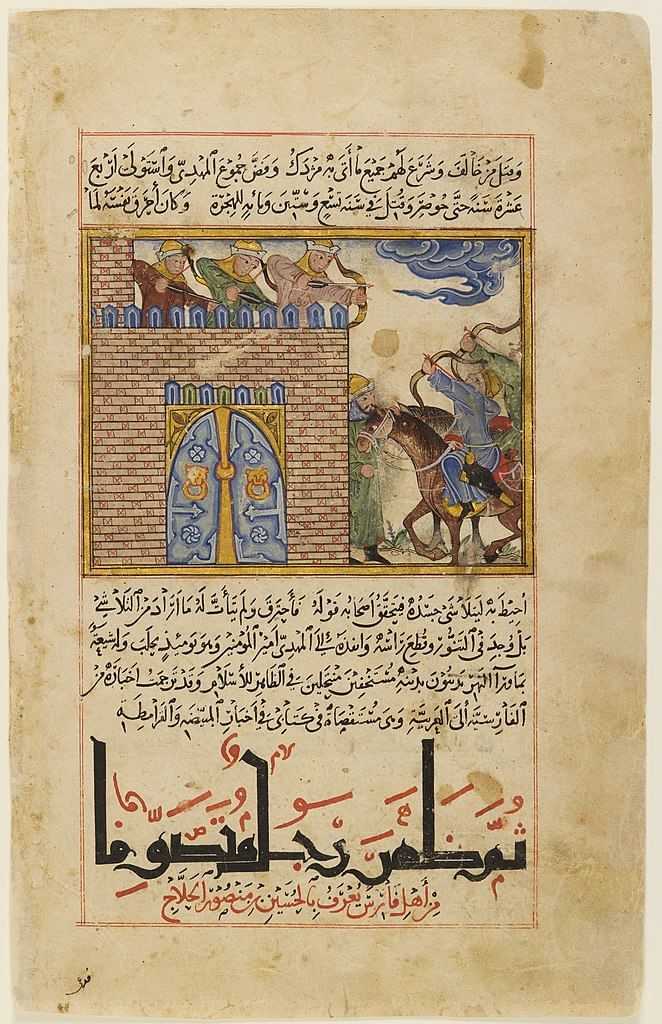 وَقتل مَن خَالَفَ وَشَرَعَ لَهُم جَميعَ مَا أَتى به مَزدَك وَفَضَّ جُموعَ المَهديّ وَاستَولَى أَربعَ
عَشرَة سَنَةً حَتَّى حوصِرَ وَقُتِلَ في سَنَة تِسعٍ وَسِتّينَ وَمائةٍ للهِجرَة وَكانَ أحرَقَ نَفسَهُ لَمّا
اُحِيطَ بهِ ليَتلاشى جَسَدُهُ فيَتحَقَّق أصحَابُه قَولَهُ فاحتَرقَ وَلَم يَتأتَّ لَهُ مَا أرَادَ مِنَ التَلاشِي
بَل وُجدَ في التَنُّور وَقُطِعَ رَأسُهُ وَانفذهُ الَى المَهديّ أمير المُؤمنينَ وهوَ يَومئذٍ بحَلَبَ وَلهُ شِيعَةٌ
بمَا ورآءَ النَهر يَدينُونَ بدينهِ مُستَخفينَ مُنتَحلينَ في الظَاهر للأسلام وَقَد تَرجمتُ اخبَارَهُ مِنَ
الفَارسيَّةِ الَى العَربيَّةِ وَهيَ مُستَقصَاةٌ في كتَابي في اخبَار المُبيِّضَه وَالقَرامطَهِ
ثمّ ظَهَرَ رجُل مُتصَوّف
مِن أهلِ فَارسَ يُعرَفُ بالحُسَينِ بنِ مَنصُور الحَلَّاج